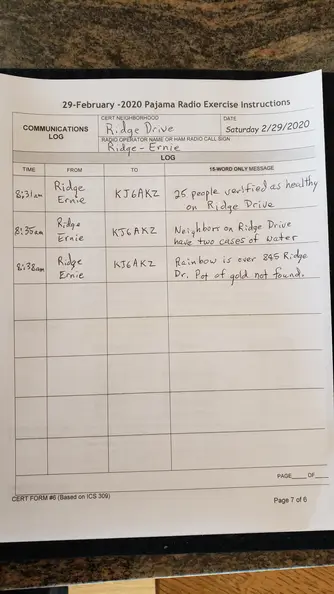 29-February -2020 Pajama Radio Exercise Instructions
COMMUNICATIONS LOG
CERT NEIGHBORHOOD
Ridge Drive
DATE
Saturday 2/29/2020
RADIO OPERATOR NAME OR HAM RADIO CALL SIGN
Ridge - Ernie
LOG
TIME FROM TO 15-WORD ONLY MESSAGE
8:31am Ridge Ernie KJ6AKZ 25 people verified as healthy
on Ridge Drive
8:35am Ridge Ernie KJ6AKZ Neighbors on Ridge Drive
have two cases of water
8:38am Ridge Ernie KJ6AKZ Rainbow is over 845 Ridge
Dr. Pot of gold not found.
PAGE____ OF____
CERT FORM #6 (Based on ICS 309)
Page 7 of 6